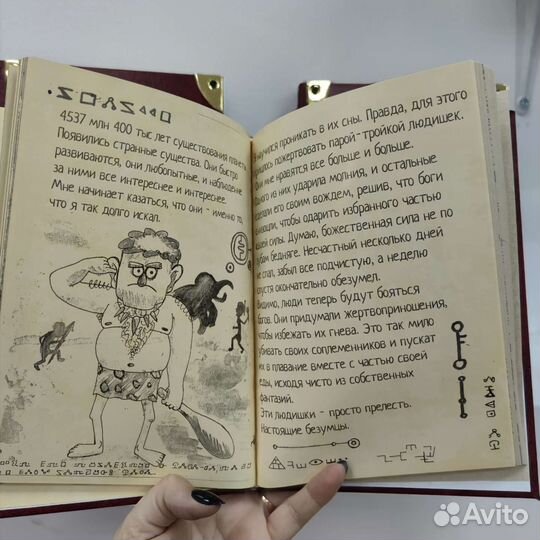 4537 млн 400 тыс лет существования планеты.
Появились странные существа. Они быстро
развиваются, они любопытные, и наблюдение
за ними все интереснее и интереснее.
Мне начинает казаться, что они - именно то,
что я так долго искал.
научился проникать в их сны. Правда, для этого
пришлось пожертвовать парой-тройкой людишек.
Они мне нравятся все больше и больше.
Одного из них ударила молния, и остальные
сделали его своим вождем, решив, что боги
чтобы одарить избранного частью
своей силы. Думаю, божественная сила не по
зубам бедняге. Несчастный несколько дней
не спал, забыл все подчистую, а неделю
спустя окончательно обезумел.
Видимо, люди теперь будут бояться
богов. Они придумали жертвоприношения,
чтобы избежать их гнева. Это так мило
убивать своих соплеменников и пускать
их в плавание вместе с частью своей
еды, исходя чисто из собственных
фантазий.
Эти людишки - просто прелесть.
Настоящие безумцы.
Avito